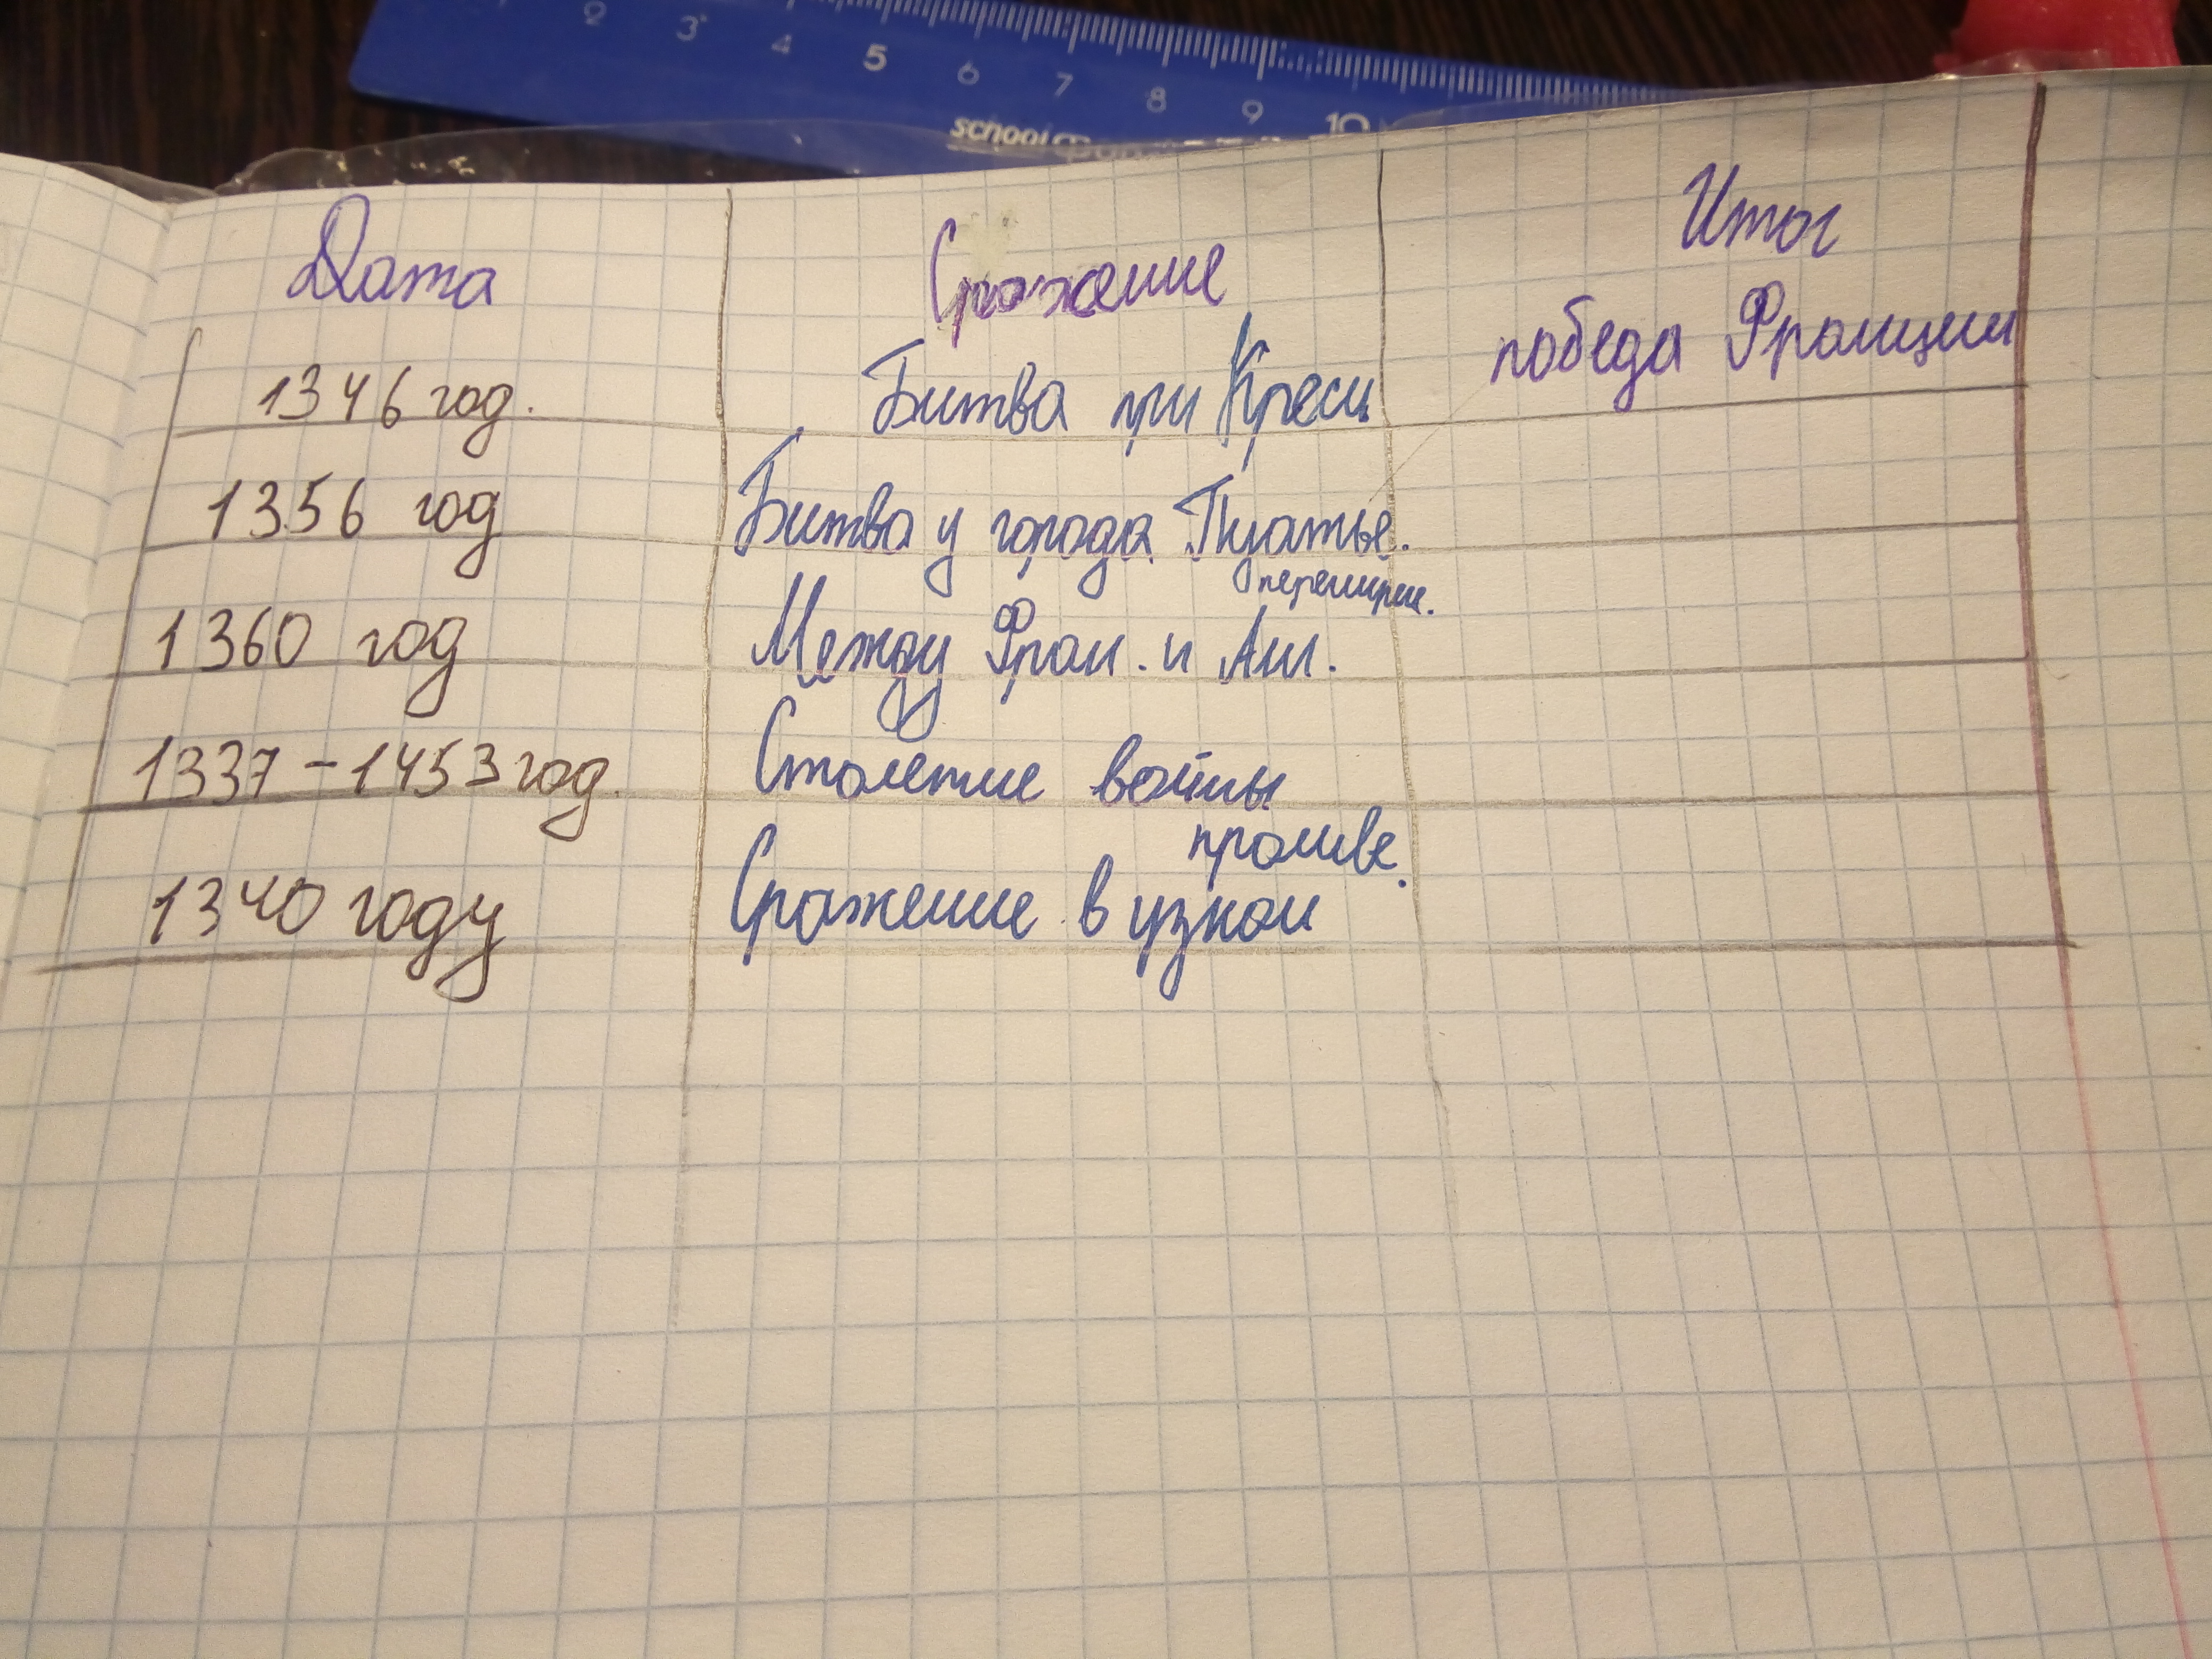 2 3 4 5 6 7 8 9 10
school
Дата Сражение Итог
1346 год. Битва при Креси победа Франции
1356 год Битва у города Пуатье.
перемирие.
1360 год Между Фран. и Анг.
1337-1453 год. Столетие войны
проливе.
1340 году Сражение в узком